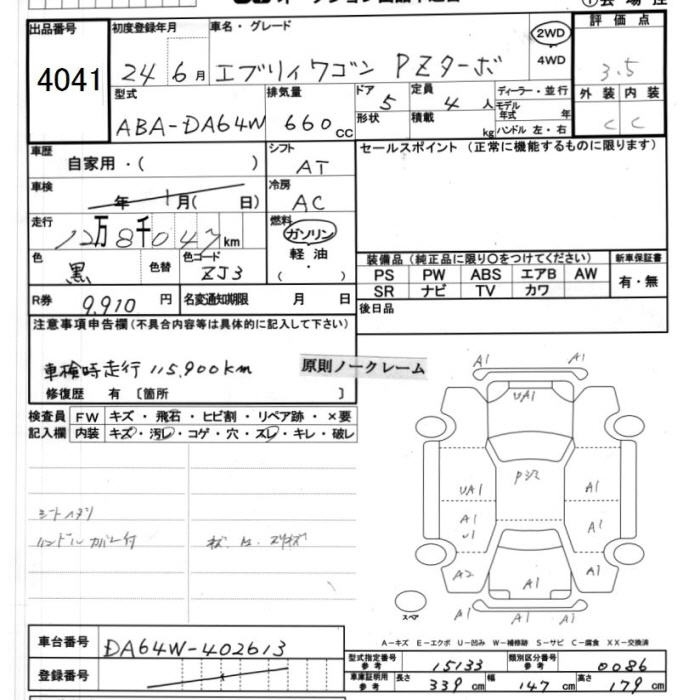 出品番号 初度登録年月 車名・グレード 2WD 評価点
4041 24年6月 エブリィワゴン PZターボ 4WD 3.5
型式 排気量 ドア 5 定員 4人 ディーラー・並行 外装 内装
ABA-DA64W 660cc 形状 積載 kg モデル年式 年 C C
ハンドル 左・右
車歴 自家用・( ) シフト AT セールスポイント (正常に機能するものに限ります)
車検 年 1月( 日) 冷房 AC
走行 12万8千047km 燃料 ガソリン
軽油
( ・ )
色 黒 色替 色コード ZJ3 装備品 (純正品に限り○をつけてください) 新車保証書
PS PW ABS エアB AW 有・無
SR ナビ TV カワ
R券 9,910円 名変通知期限 月 日 後日品
注意事項申告欄 (不具合内容等は具体的に記入して下さい)
車検時走行 115,900km 原則ノークレーム
修復歴 有 〔箇所 〕
検査員 FW キズ・飛石・ヒビ割・リペア跡・×要
記入欄 内装 キズ・汚レ・コゲ・穴・スレ・キレ・破レ
シートヘタリ
ハンドルカバー付
A1 A1
UA1
Pシミ
UA1 A1
A1 A1
U1
A2 A1 A1
A1 A1 A1
スペア
A-キズ E-エクボ U-凹み W-補修跡 S-サビ C-腐食 XX-交換済
車台番号 DA64W-402613
型式指定番号 参考 15133 類別区分番号 参考 0086
登録番号 車庫証明用 参考 長さ 339cm 幅 147cm 高さ 179cm